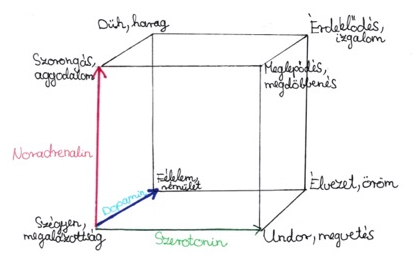 Düh, harag
Érdeklődés,
izgalom
Szorongás,
aggodalom
Meglepődés,
megdöbbenés
Noradrenalin
Félelem,
rémület
Dopamin
Élvezet, öröm
Szégyen,
megalázottság
Szerotonin
Undor, megvetés